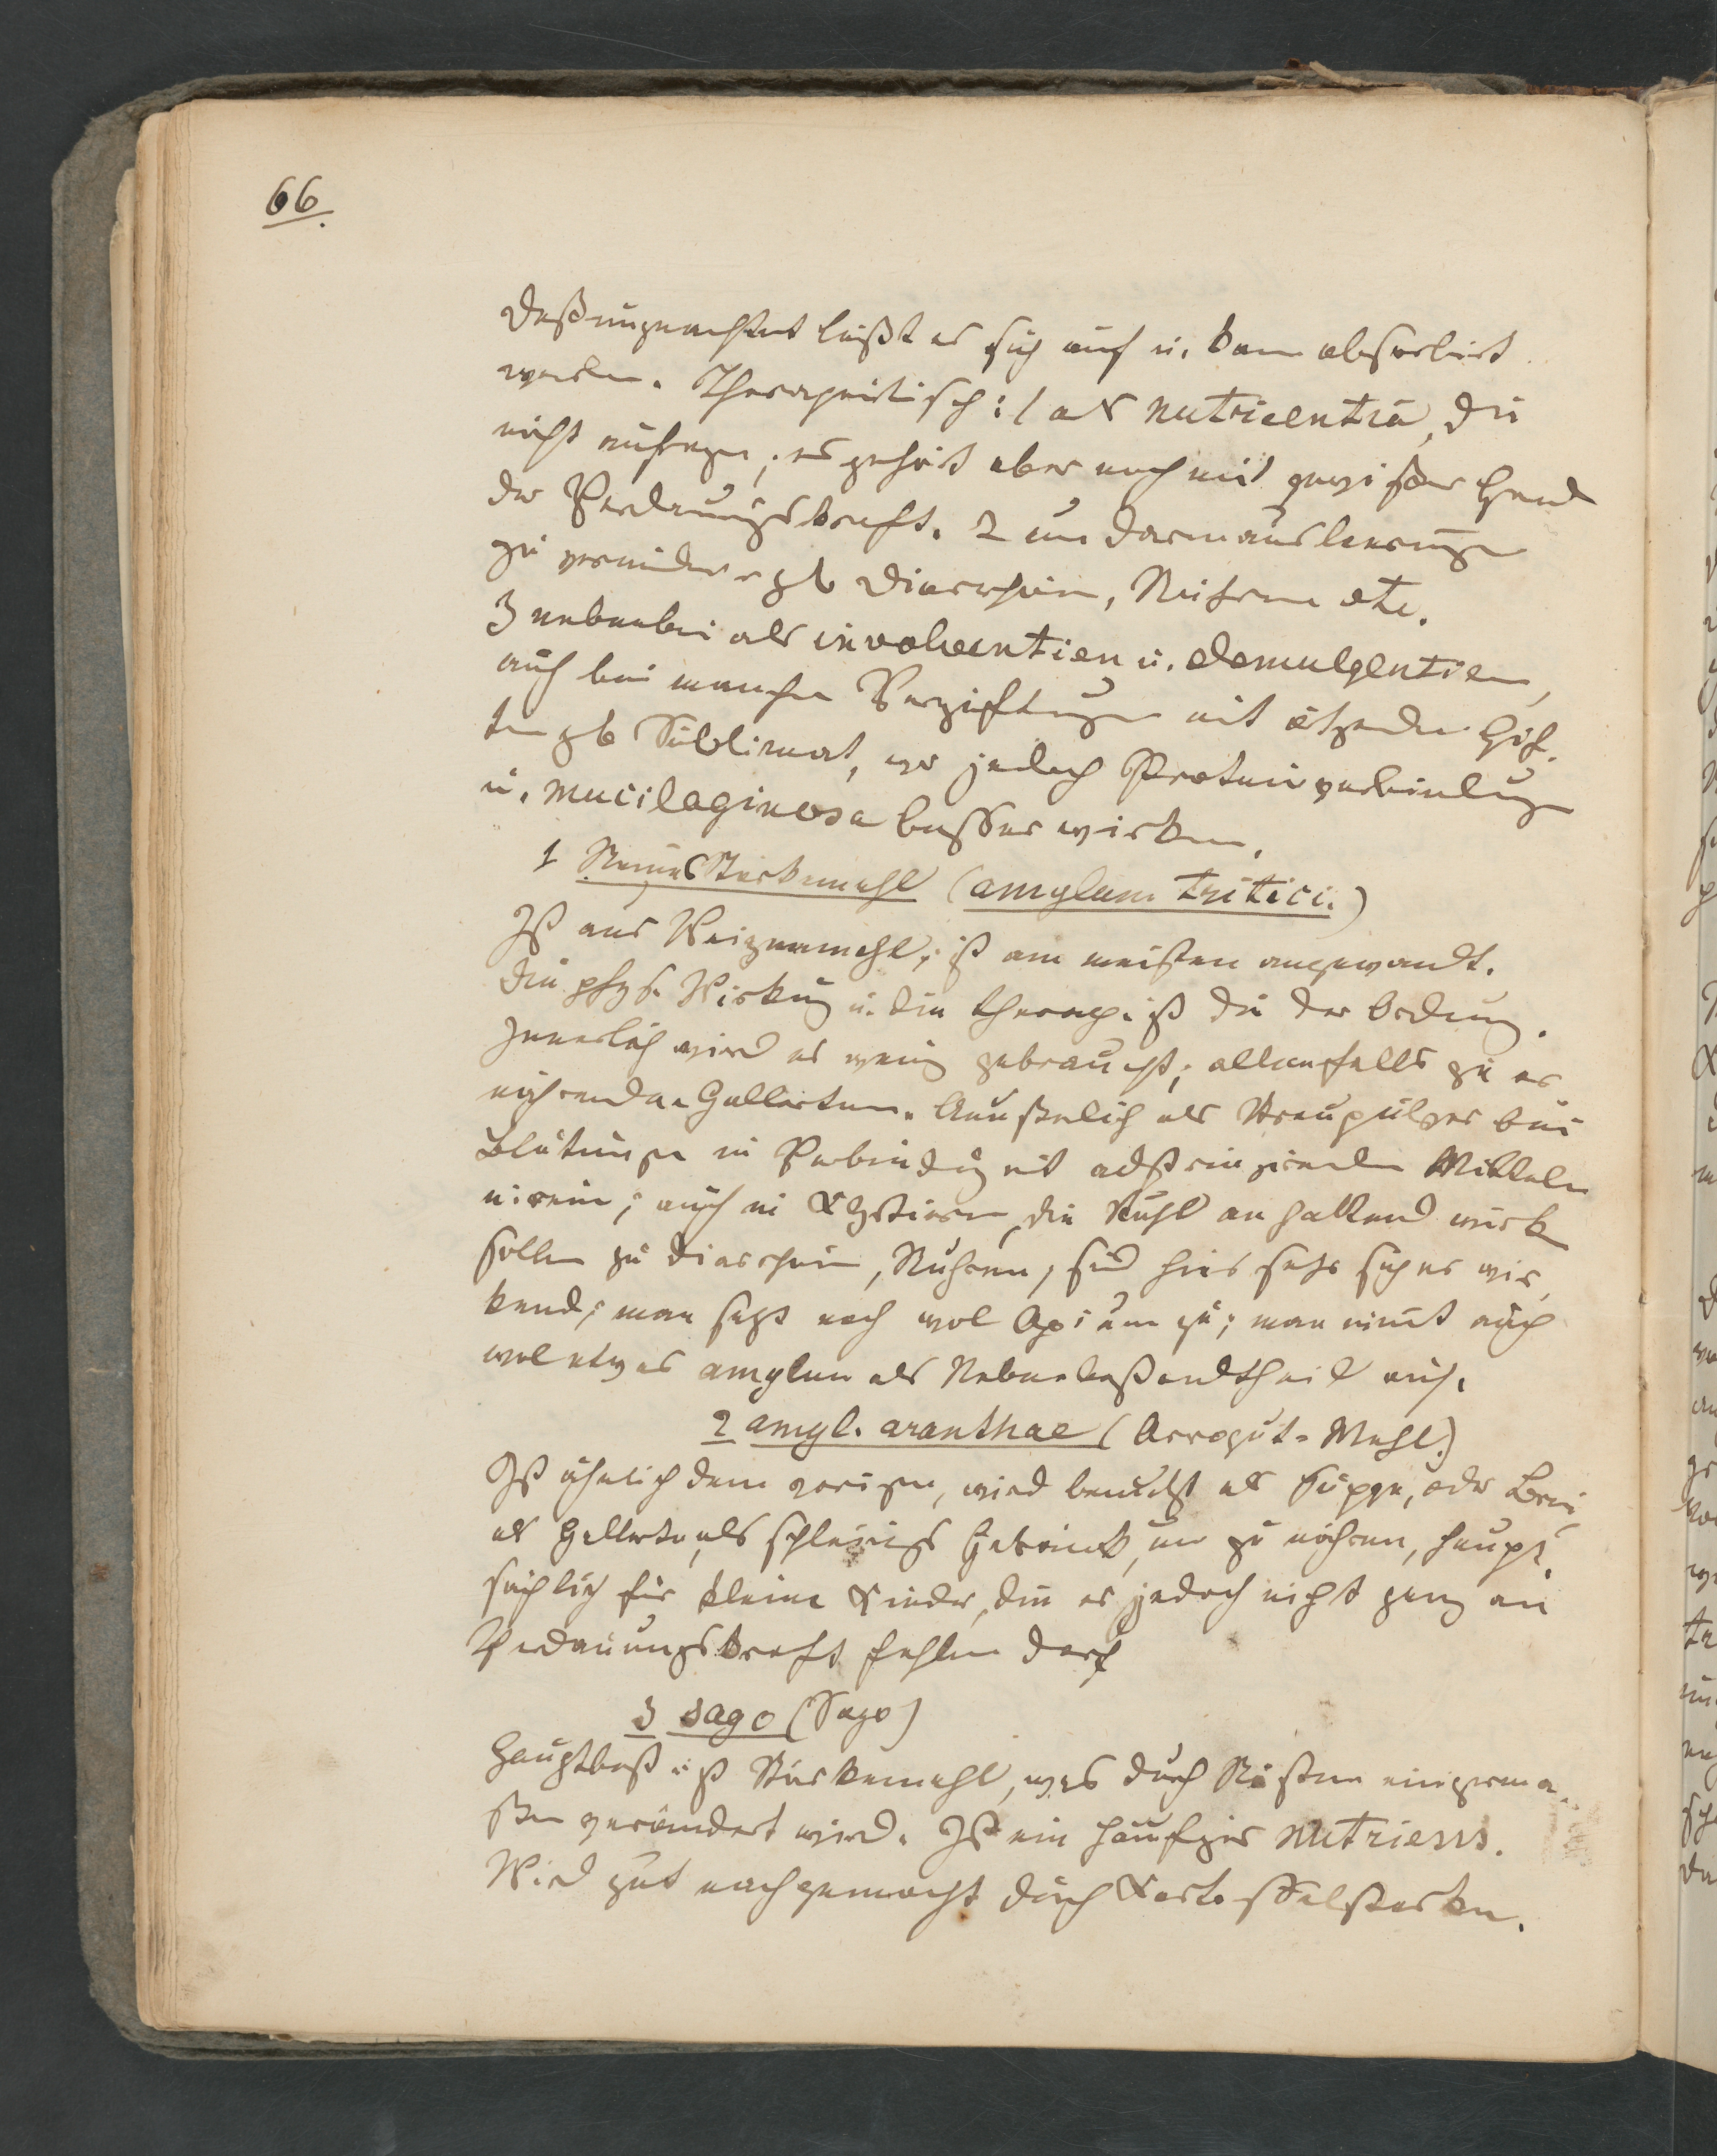 66.
Deßungeachtet läßt es sich auf u. kann absorbirt
werden. Therapeutisch: 1 als nutrientia, die
nicht aufregen; es gehört aber noch ein gewisser Grad
der Verdauungskraft. 2 um Darmausleerungen
zu vermindern zb Diarrhöen, Ruhren etc.
3 nebenbei als involventien u. demulgentien,
auch bei manchen Vergiftungen mit ätzenden Gif-
ten zb Sublimat, wo jedoch Proteinverbindungen
u. mucilaginosa besser wirken.
1 Stärkemehl (amylum tritici.)
Ist aus Weizenmehl; ist am meisten angewandt.
Die phys. Wirkung u. die therap. ist die der Ordnung.
Innerlich wird es wenig gebraucht; allenfalls zu er
nährenden Gallerten. Aeußerlich als Streupulver bei
Blutungen in Verbindung mit adstringirenden Mitteln
; auch in Klystieren, die Stuhl anhaltend wirken
sollen zu Diarrhöen, Ruhren, sind hier sehr sicher wir-
kend; man setzt noch wol Opium zu; man nimt auch
wol etwas amylum als Nebenbestandtheil auf.
2 amyl. aranthae (Arrowut-Mehl.)
Ist ähnlich dem vorigen, wird benutzt als Suppe, oder Brei,
als Gallerte, als schleimiges Getränk, um zu nähren, haupt-
sächlich für kleine Kinder, die es jedoch nicht ganz an
Verdauungskraft fehlen darf
3 sago (Sago)
Hauptbest ist Stärkemehl, was durch Rösten einigerma-
ßen verändert wird. Ist ein häufiges nutriens.
Wird gut nachgemacht durch Kartoffelstärken.